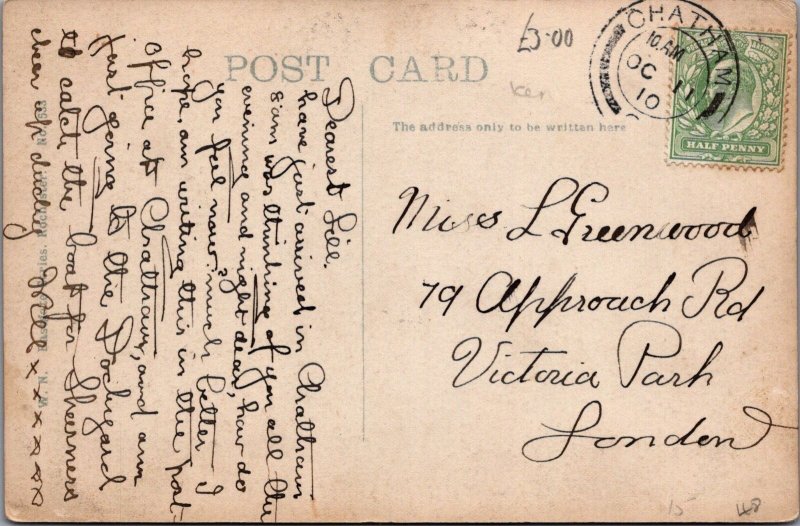 £3.00
POST CARD
CHATHAM
10.AM
OC 11
10
HALF PENNY
The address only to be written here
Dearest Lill.
have just arrived in Chatham
& am was thinking of you all the
evening and night dear, how do
you feel now? much better I
hope, am writing this in the post-
office at Chatham, and am
just going to the Dockyard
to catch the boat for Sheerness
cheer up ducky Will x x x x x x
Miss L Greenwood
79 Approach Rd
Victoria Park
London
W. N.
15
48